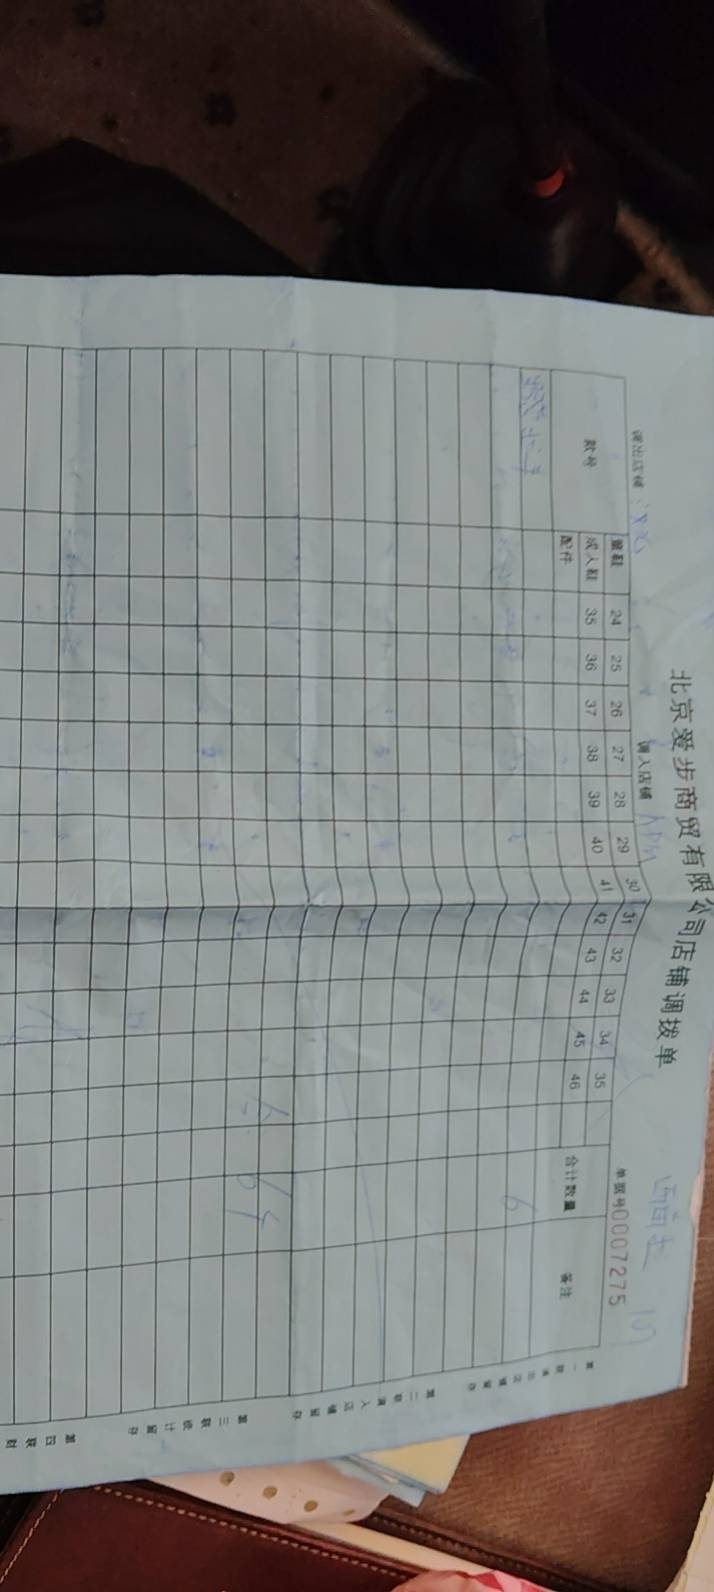 北京爱步商贸有限公司店铺调拨单
调出店铺: 调入店铺 APM 单据号0007275
童鞋 24 25 26 27 28 29 30 31 32 33 34 35
款号 成人鞋 35 36 37 38 39 40 41 42 43 44 45 46 合计数量 备注
配件
6
第一联调出店铺留存
第二联调入店铺留存
第三联统计留存
第四联财